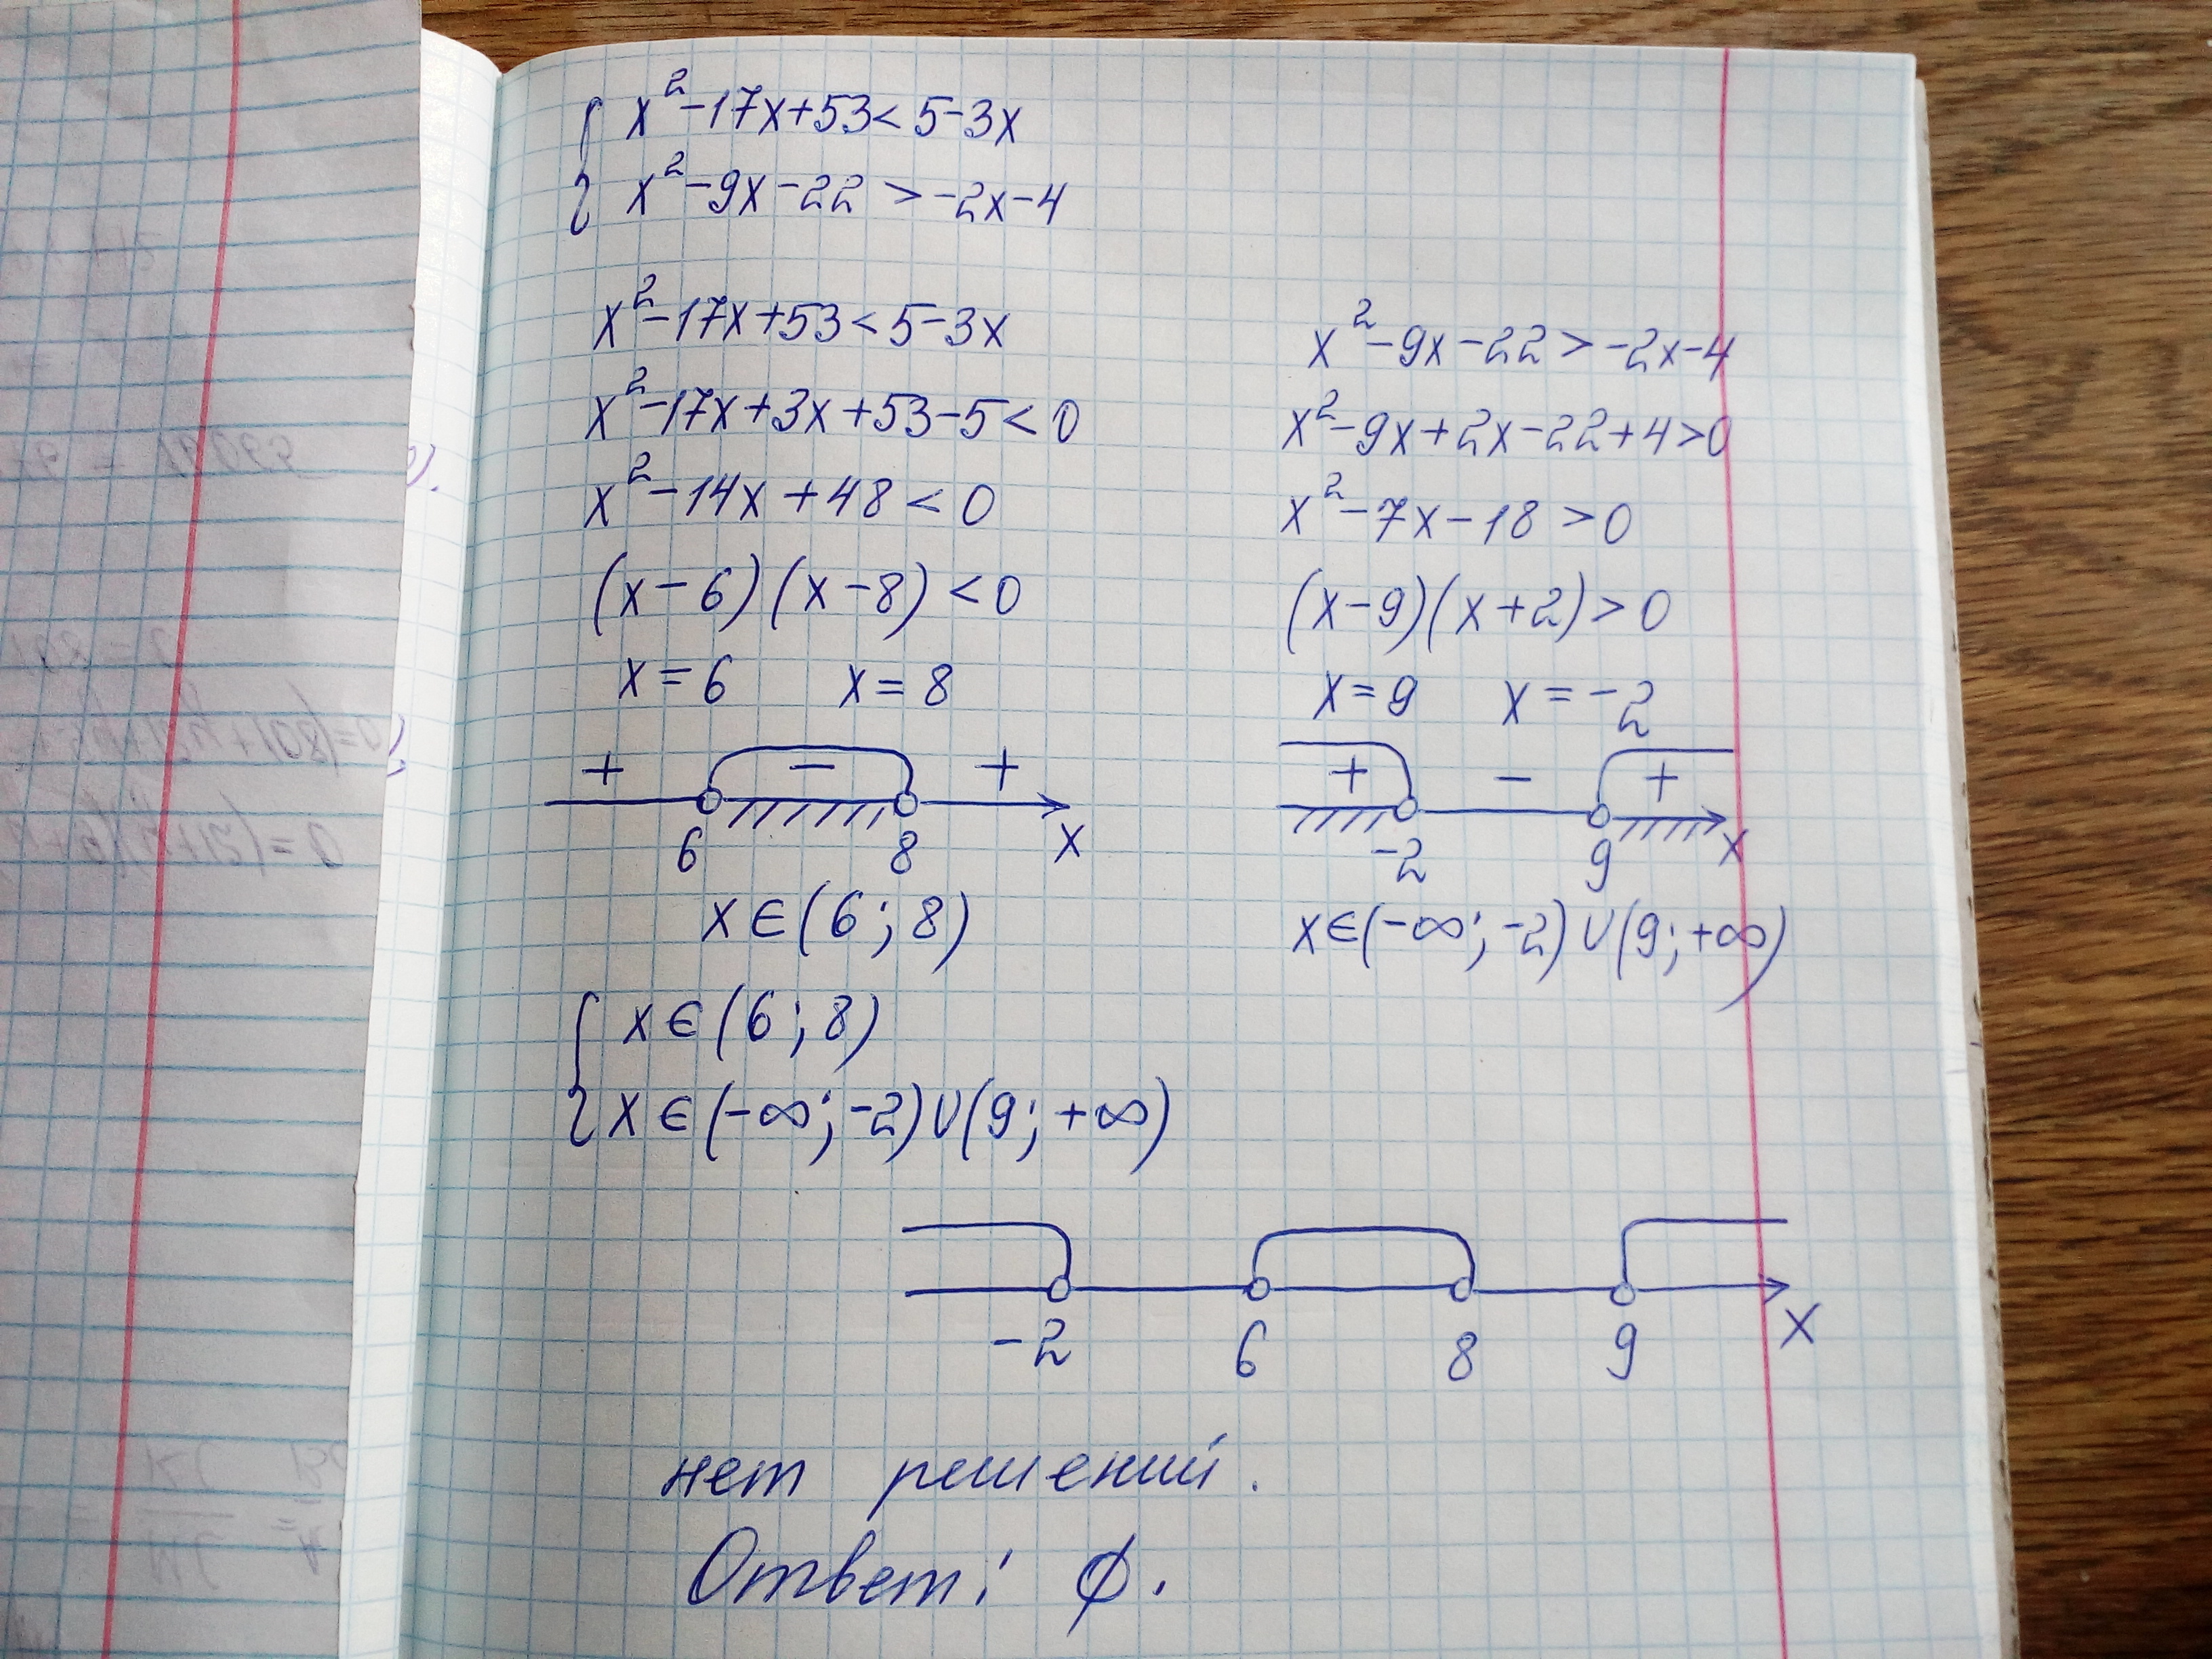 { x²-17x+53<5-3x
x²-9x-22>-2x-4
x²-17x+53<5-3x
x²-17x+3x+53-5<0
x²-14x+48<0
(x-6)(x-8)<0
x=6 x=8
+ - +
6 8 x
x∈(6;8)
x²-9x-22>-2x-4
x²-9x+2x-22+4>0
x²-7x-18>0
(x-9)(x+2)>0
x=9 x=-2
+ - +
-2 9 x
x∈(-∞;-2)∪(9;+∞)
{ x∈(6;8)
x∈(-∞;-2)∪(9;+∞)
-2 6 8 9 x
нет решений.
Ответ: ∅.